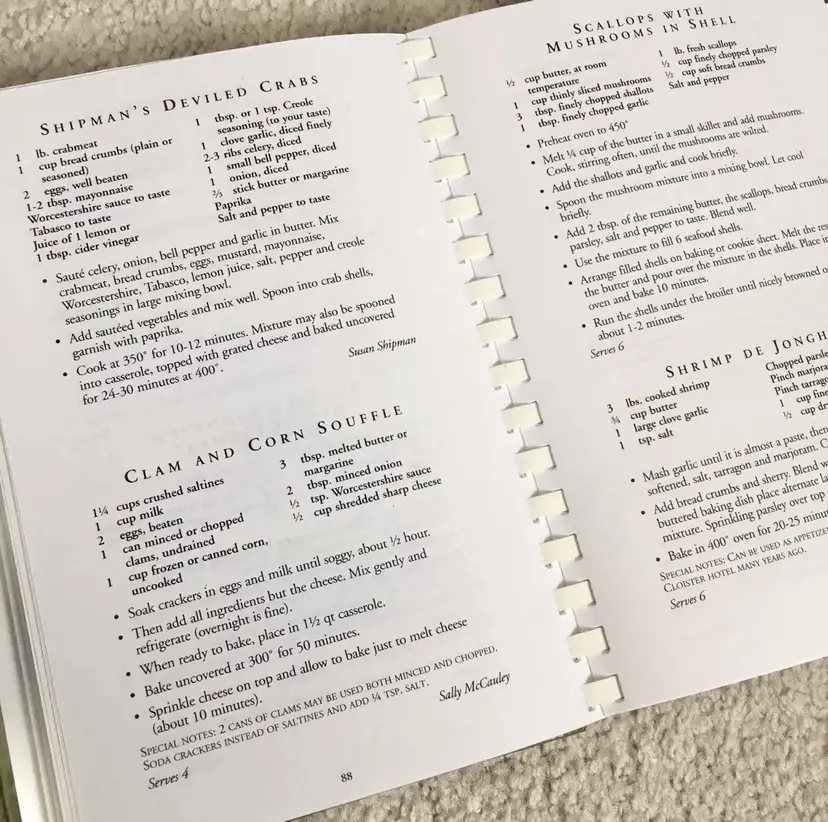 SHIPMAN'S DEVILED CRABS
1 lb. crabmeat
1 cup bread crumbs (plain or
seasoned)
2 eggs, well beaten
1-2 tbsp. mayonnaise
Worcestershire sauce to taste
Tabasco to taste
Juice of 1 lemon or
1 tbsp. cider vinegar
1 tbsp. or 1 tsp. Creole
seasoning (to your taste)
1 clove garlic, diced finely
2-3 ribs celery, diced
1 small bell pepper, diced
1 onion, diced
⅔ stick butter or margarine
Paprika
Salt and pepper to taste
• Sauté celery, onion, bell pepper and garlic in butter. Mix
crabmeat, bread crumbs, eggs, mustard, mayonnaise,
Worcestershire, Tabasco, lemon juice, salt, pepper and creole
seasonings in large mixing bowl.
• Add sautéed vegetables and mix well. Spoon into crab shells,
garnish with paprika.
• Cook at 350° for 10-12 minutes. Mixture may also be spooned
into casserole, topped with grated cheese and baked uncovered
for 24-30 minutes at 400°.
Susan Shipman
CLAM AND CORN SOUFFLE
1¼ cups crushed saltines
1 cup milk
2 eggs, beaten
1 can minced or chopped
clams, undrained
1 cup frozen or canned corn,
uncooked
3 tbsp. melted butter or
margarine
2 tbsp. minced onion
½ tsp. Worcestershire sauce
½ cup shredded sharp cheese
• Soak crackers in eggs and milk until soggy, about ½ hour.
• Then add all ingredients but the cheese. Mix gently and
refrigerate (overnight is fine).
• When ready to bake, place in 1½ qt casserole.
• Bake uncovered at 300° for 50 minutes.
• Sprinkle cheese on top and allow to bake just to melt cheese
(about 10 minutes).
SPECIAL NOTES: 2 CANS OF CLAMS MAY BE USED BOTH MINCED AND CHOPPED.
SODA CRACKERS INSTEAD OF SALTINES AND ADD ¼ TSP. SALT.
Sally McCauley
Serves 4
88
SCALLOPS WITH
MUSHROOMS IN SHELL
½ cup butter, at room
temperature
1 cup thinly sliced mushrooms
3 tbsp. finely chopped shallots
1 tbsp. finely chopped garlic
1 lb. fresh scallops
½ cup finely chopped parsley
½ cup soft bread crumbs
Salt and pepper
• Preheat oven to 450°
• Melt ¼ cup of the butter in a small skillet and add mushrooms.
Cook, stirring often, until the mushrooms are wilted.
• Add the shallots and garlic and cook briefly.
• Spoon the mushroom mixture into a mixing bowl. Let cool
briefly.
• Add 2 tbsp. of the remaining butter, the scallops, bread crumbs
parsley, salt and pepper to taste. Blend well.
• Use the mixture to fill 6 seafood shells.
• Arrange filled shells on baking or cookie sheet. Melt the res
the butter and pour over the mixture in the shells. Place in
oven and bake 10 minutes.
• Run the shells under the broiler until nicely browned o
about 1-2 minutes.
Serves 6
SHRIMP DE JONGH
3 lbs. cooked shrimp
¾ cup butter
1 large clove garlic
1 tsp. salt
Chopped parsle
Pinch marjora
Pinch tarrago
1 cup fine
½ cup dr
• Mash garlic until it is almost a paste, then
softened, salt, tarragon and marjoram. C
• Add bread crumbs and sherry. Blend w
buttered baking dish place alternate la
mixture. Sprinkling parsley over top
• Bake in 400° oven for 20-25 minu
SPECIAL NOTES: CAN BE USED AS APPETIZE
CLOISTER HOTEL MANY YEARS AGO.
Serves 6